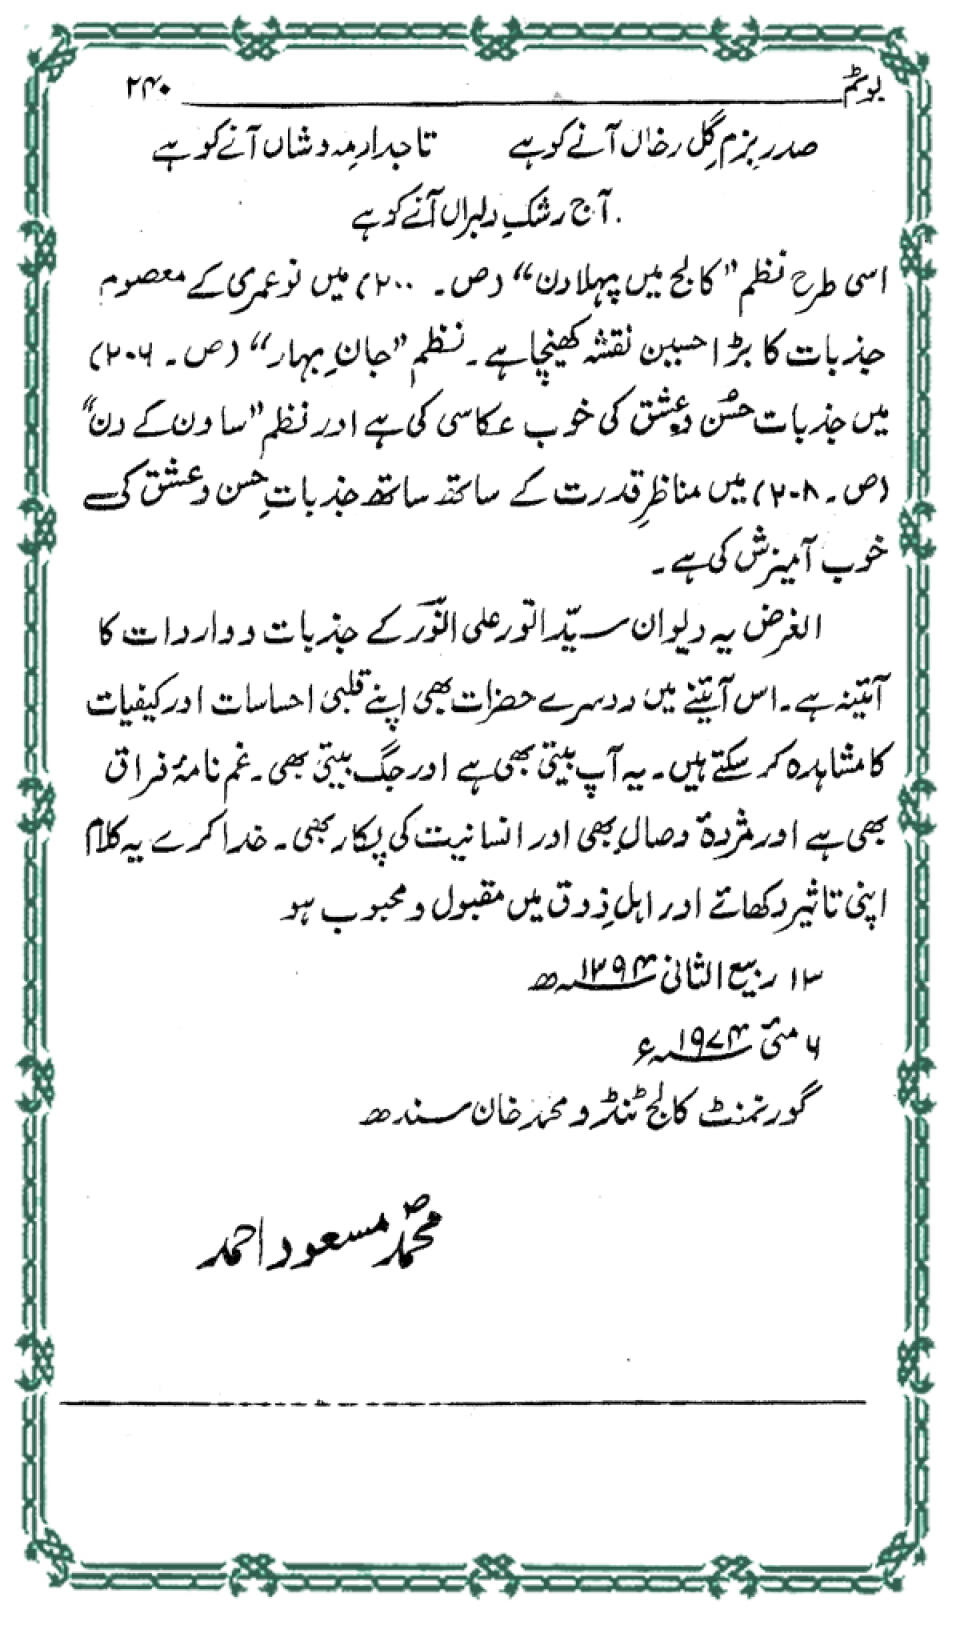 بوئے ۲۴۰
صدر بزمِ گل رخاں آنے کو ہے تاجدارِ مہ وشاں آنے کو ہے
آج رشکِ دلبراں آنے کو ہے
اسی طرح نظم "کالج میں پہلا دن" (ص۔ ۲۰۰) میں نو عمری کے معصوم
جذبات کا بڑا حسین نقشہ کھینچا ہے۔ نظم "جانِ بہار" (ص۔ ۲۰۶)
میں جذبات حسُن و عشق کی خوب عکاسی کی ہے اور نظم "ساون کے دن"
(ص۔ ۲۰۸) میں مناظرِ قدرت کے ساتھ ساتھ جذباتِ حسن و عشق کی
خوب آمیزش کی ہے۔
الغرض یہ دیوان سیّد انور علی انورؔ کے جذبات و واردات کا
آئینہ ہے۔ اس آئینے میں دوسرے حضرات بھی اپنے قلبی احساسات اور کیفیات
کا مشاہدہ کر سکتے ہیں۔ یہ آپ بیتی بھی ہے اور جگ بیتی بھی۔ غم نامۂ فراق
بھی ہے اور مژدۂ وصال بھی اور انسانیت کی پکار بھی۔ خدا کرے یہ کلام
اپنی تاثیر دکھائے اور اہلِ ذوق میں مقبول و محبوب ہو
۱۳ ربیع الثانی ۱۳۹۴ھ
۶ مئی ۱۹۷۴ء
گورنمنٹ کالج ٹنڈو محمد خان سندھ
محمدؐ مسعود احمد